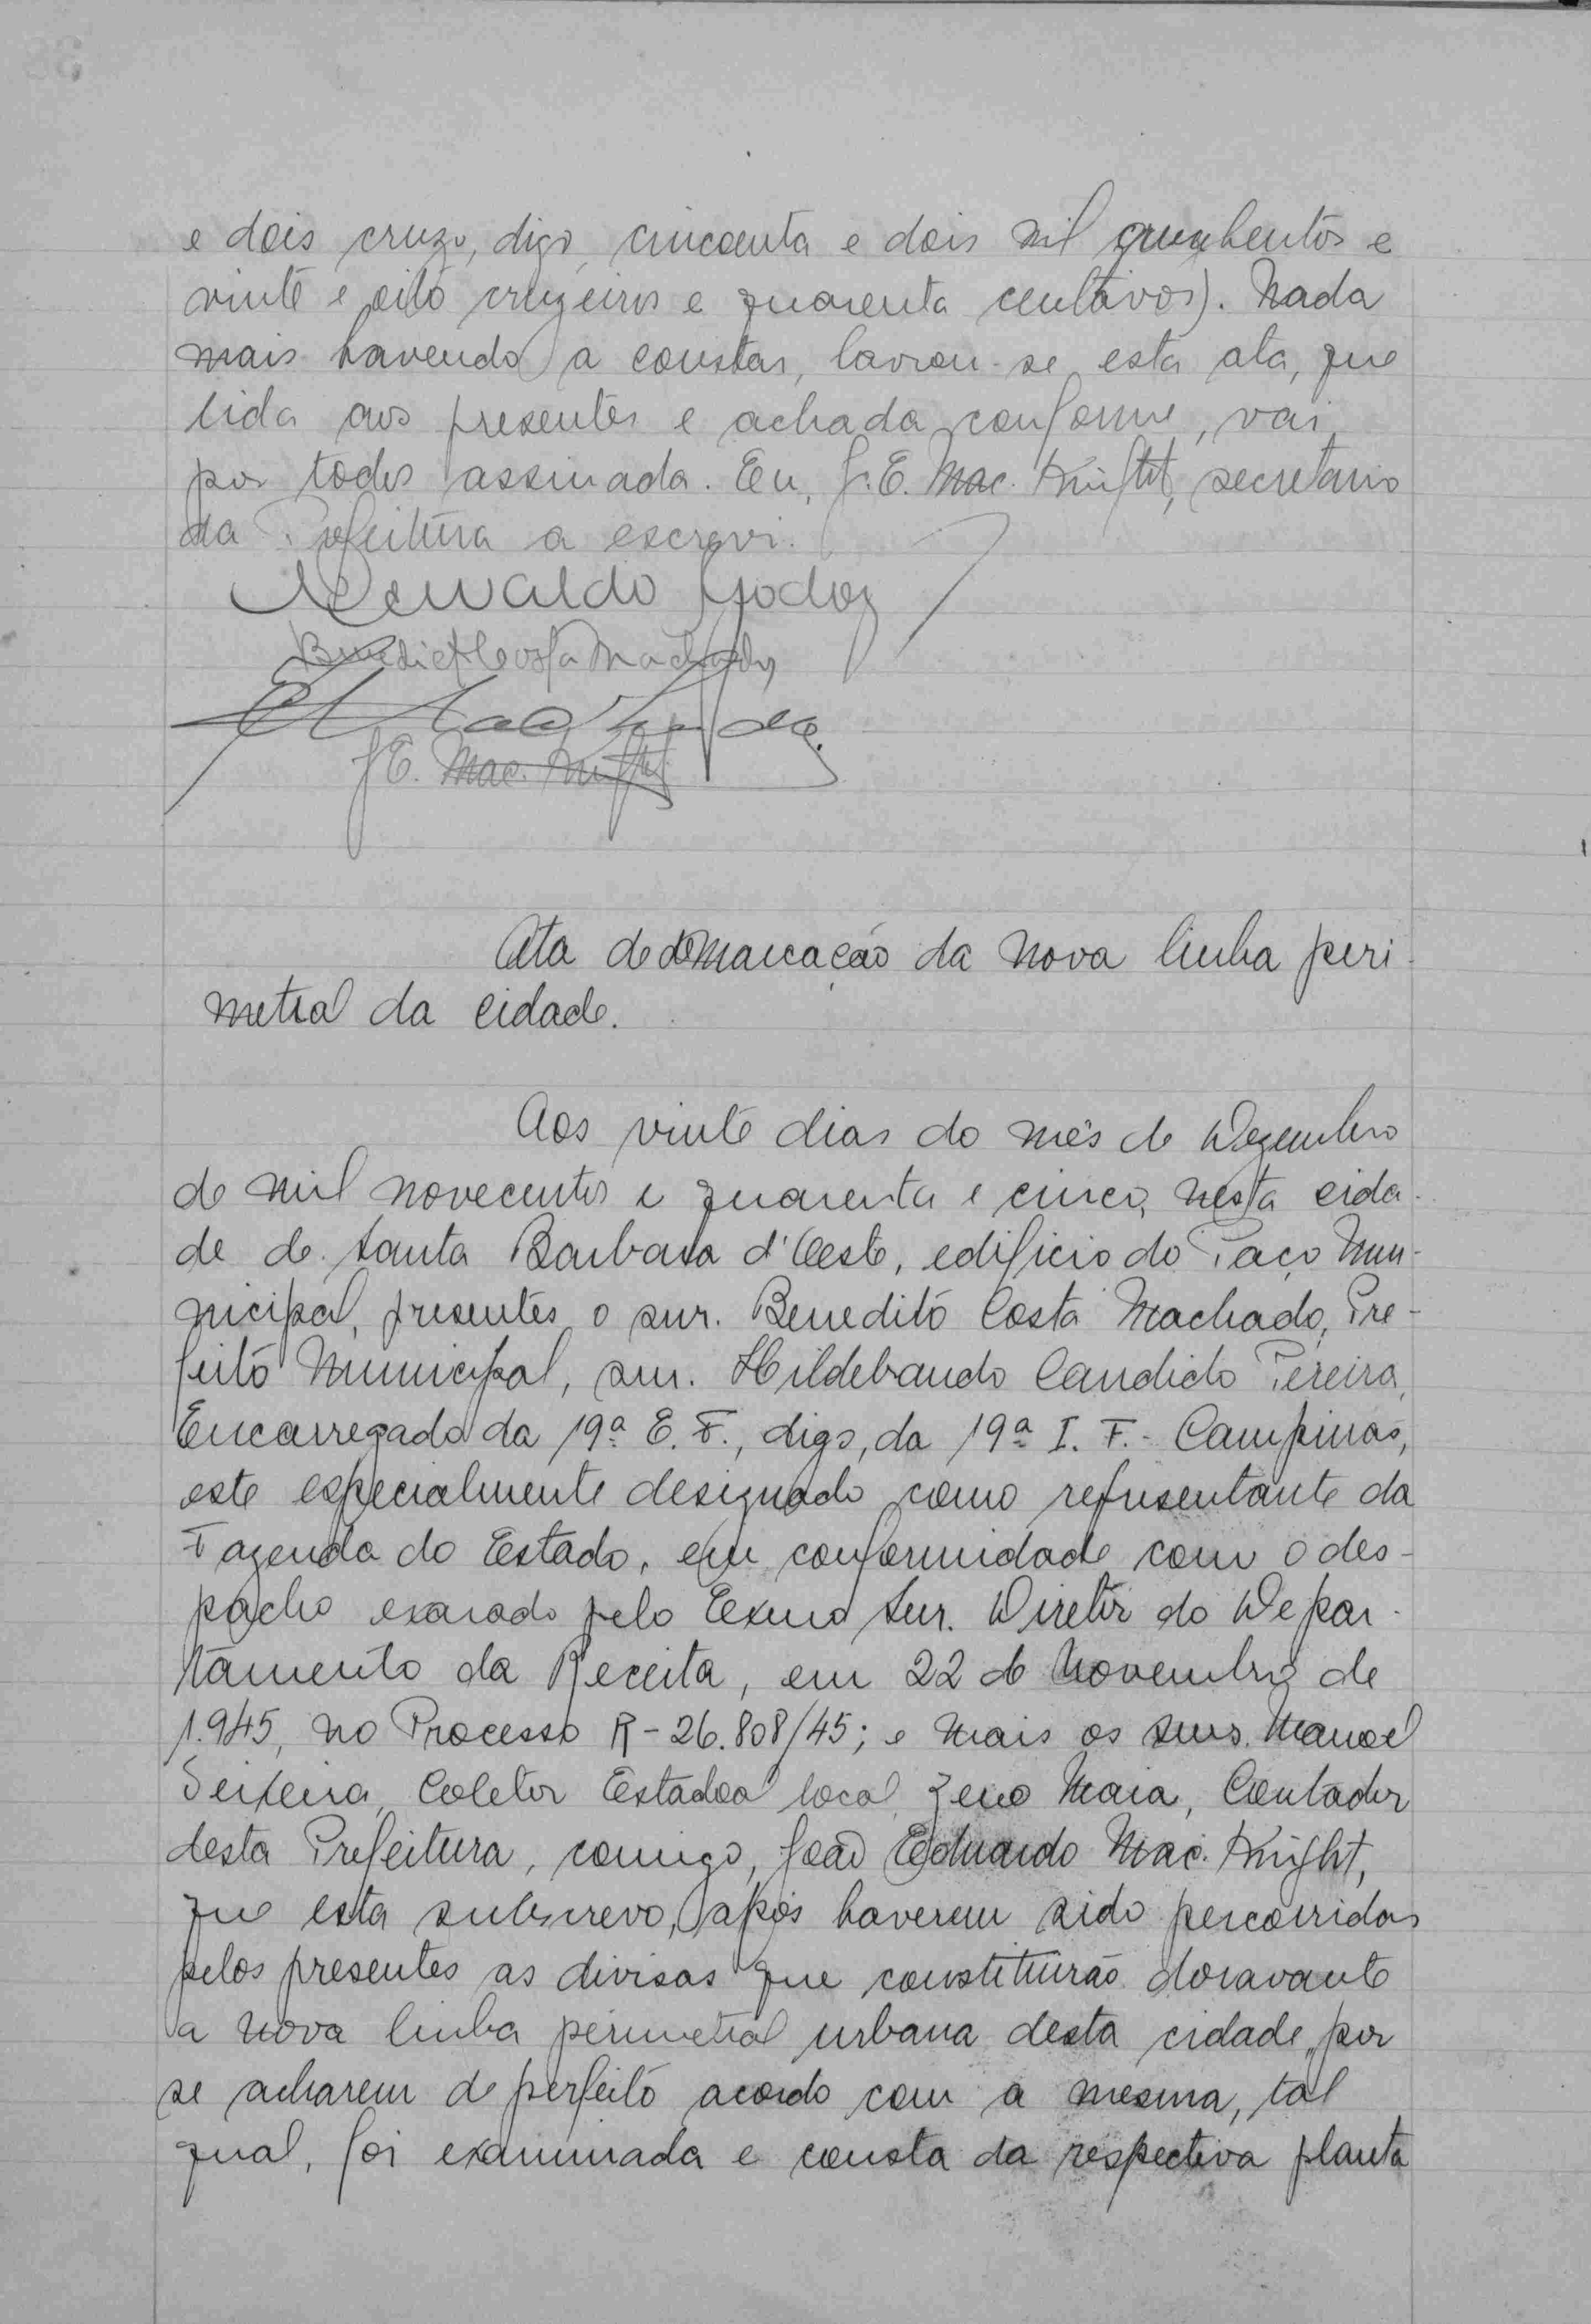 e dois cruze, digo, cincoenta e dois mil quinhentos e
vinte e oito cruzeiros e quarenta centavos). Nada
mais havendo a constar, lavrou-se esta ata, que
lida aos presentes e achada conforme, vai
por todos assinada. Eu, J. E. Mac. Knight, secretario
da Prefeitura a escrevi.
Newaldo Godoy
Benedicto Costa Machado
J E. Mac. Knight
Ata de demarcação da nova linha peri-
metral da cidade.
Aos vinte dias do mês de Dezembro
de mil novecentos e quarenta e cinco, nesta cida-
de de Santa Barbara d'Oeste, edificio do Paço Mun-
nicipal, presentes o snr. Benedito Costa Machado, Pre-
feito Municipal, snr. Hildebando Candido Pereira,
Encarregado da 19ª E. F., digo, da 19ª I. F. - Campinas,
este especialmente designado como representante da
Fazenda do Estado, em conformidade com o des-
pacho exarado pelo Exmo Snr. Diretor do Depar-
tamento da Receita, em 22 de Novembro de
1.945, no Processo R-26.808/45; e mais os snrs. Manoel
Teixeira, Coletor Estadoal local, Zeno Maia, Contador
desta Prefeitura, comigo, João Eduardo Mac. Knight,
que esta subscrevo, após haverem sido percorridas
pelos presentes as divisas que constituirão doravante
a nova linha perimetral urbana desta cidade, por
se acharem de perfeito acordo com a mesma, tal
qual, foi examinada e consta da respectiva planta